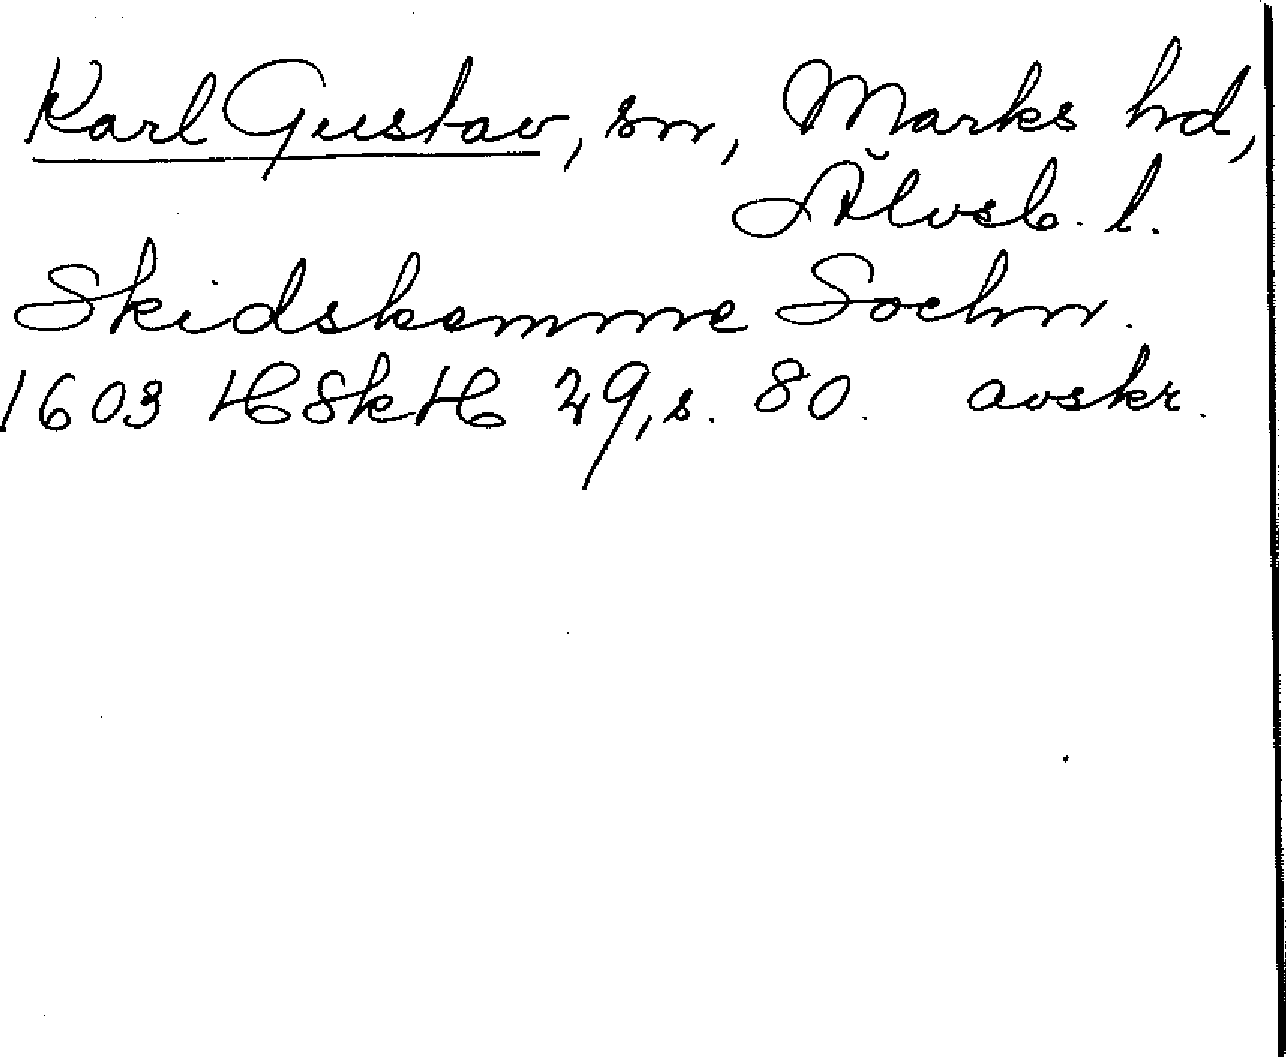 Karl Gustav, sn, Marks hd,
Älvsb. l.
Skidskemme Sochn.
1603 HSkH 29, s. 80. avskr.